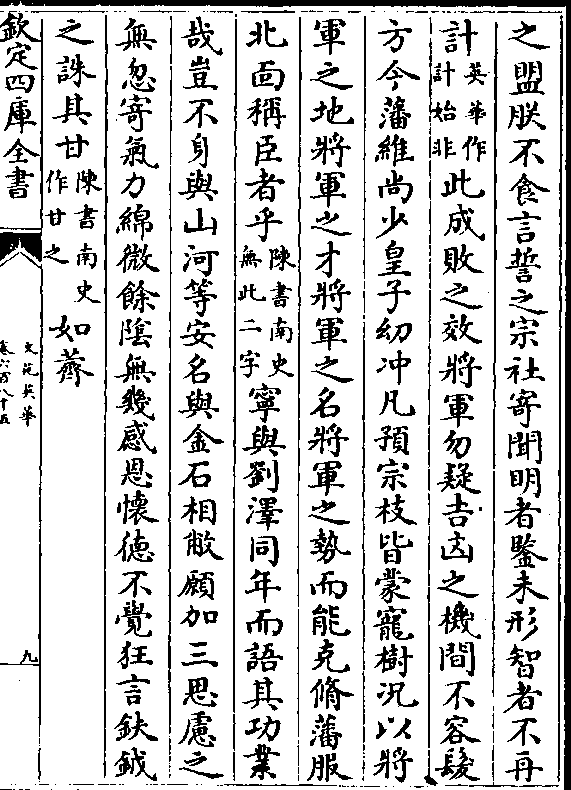 之盟朕不食言誓之宗社寄聞明者鑒未形智者不再
計英華作計始非此成敗之效將軍勿疑吉凶之機間不容髮
方今藩維尚少皇子幼沖凡預宗枝皆蒙寵樹況以將
軍之地將軍之才將軍之名將軍之勢而能克脩藩服
北面稱臣者乎陳書南史無此二字寧與劉澤同年而語其功業
哉豈不身與山河等安名與金石相敝願加三思慮之
無忽寄氣力綿微餘陰無幾感恩懷德不覺狂言鈇鉞
之誅其甘陳書南史作甘之如薺
欽定四庫全書
文苑英華
卷六百八十五
九